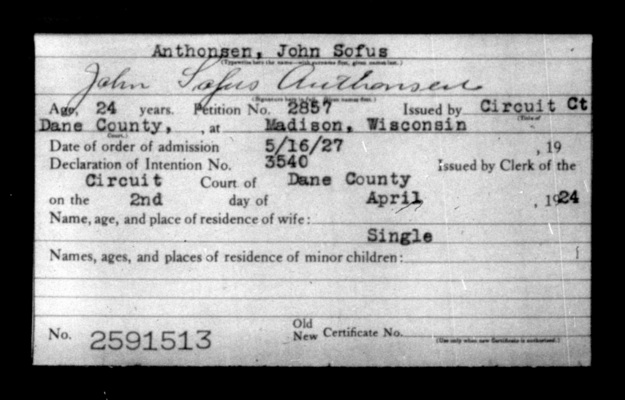 Anthonsen, John Sofus
(Typewrite here the name—with surname first, given names last.)
John Sofus Anthonsen
(Signature here in full, given names first.)
Age, 24 years. Petition No. 2857 Issued by Circuit Ct
(Title of
Dane County, , at Madison, Wisconsin
Court.)
Date of order of admission 5/16/27 , 19
Declaration of Intention No. 3540 Issued by Clerk of the
Circuit Court of Dane County
on the 2nd day of April , 1924
Name, age, and place of residence of wife:
Single
Names, ages, and places of residence of minor children:
No. 2591513 Old New Certificate No.
(Use only when new Certificate is authorized.)